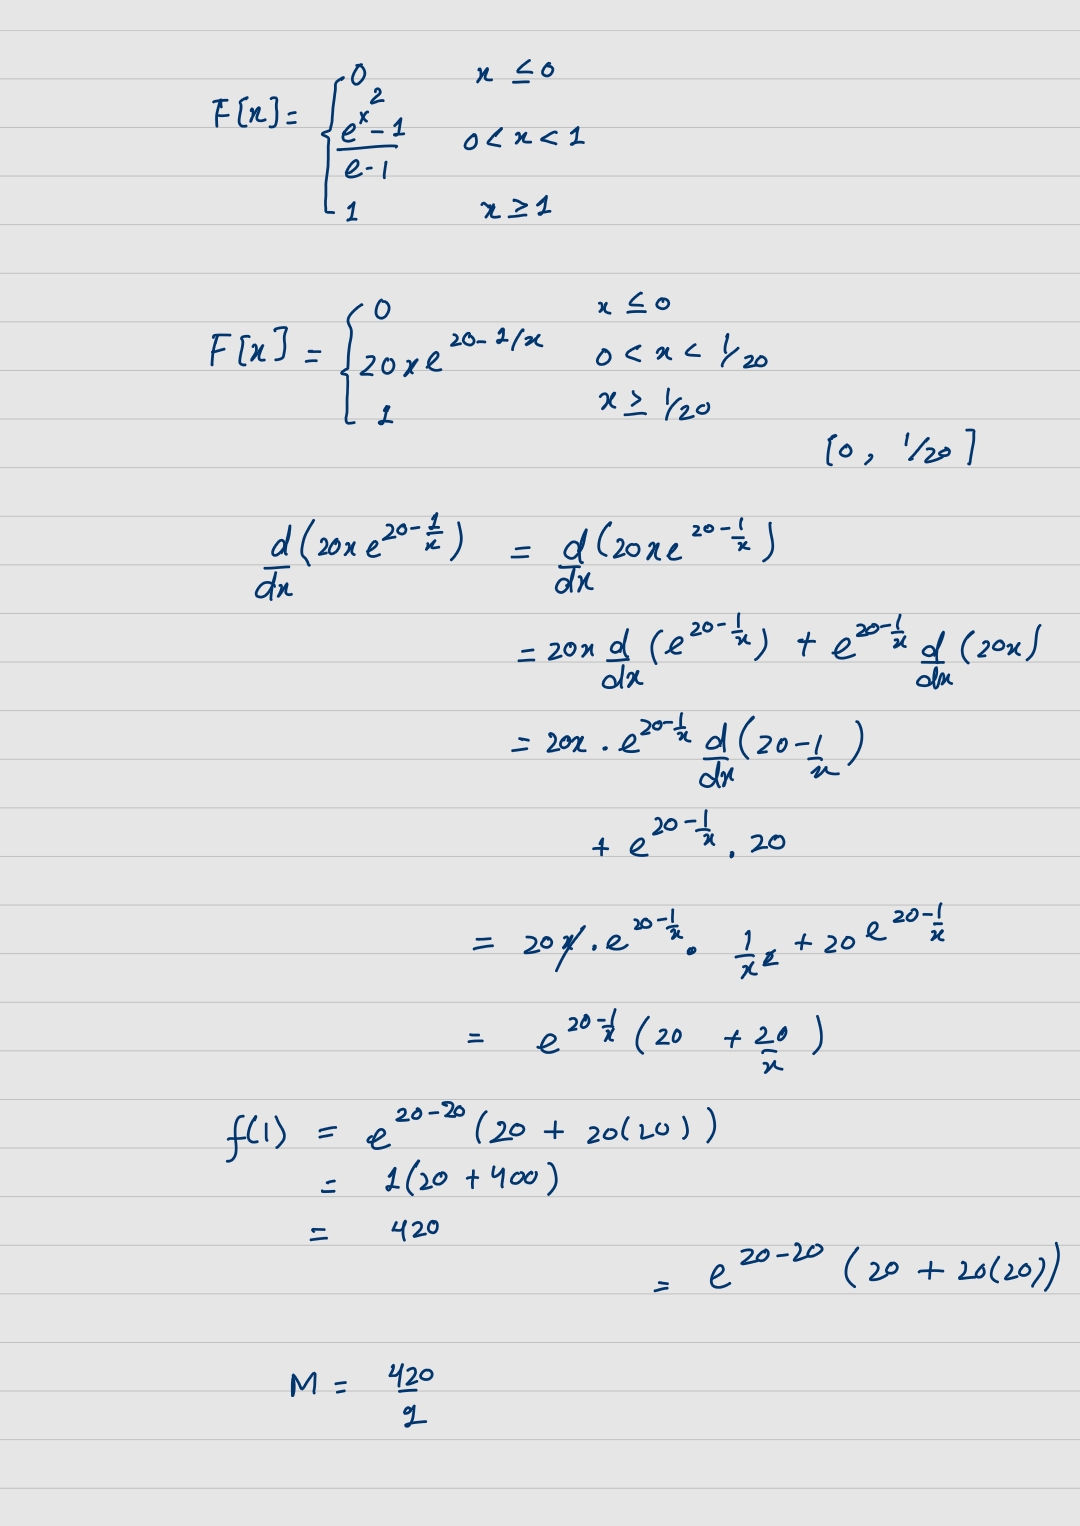 F[x] = { 0 x ≤ 0
(e^x^2 - 1)/(e - 1) 0 < x < 1
1 x ≥ 1
F[x] = { 0 x ≤ 0
20xe^(20-1/x) 0 < x < 1/20
1 x ≥ 1/20
[0, 1/20]
d/dx (20xe^(20-1/x)) = d/dx (20xe^(20-1/x))
= 20x d/dx (e^(20-1/x)) + e^(20-1/x) d/dx (20x)
= 20x . e^(20-1/x) d/dx (20-1/x)
+ e^(20-1/x) . 20
= 20x . e^(20-1/x) . 1/x^2 + 20 e^(20-1/x)
= e^(20-1/x) (20 + 20/x)
f(1) = e^(20-20) (20 + 20(20))
= 1(20 + 400)
= 420
= e^(20-20) (20 + 20(20))
M = 420/